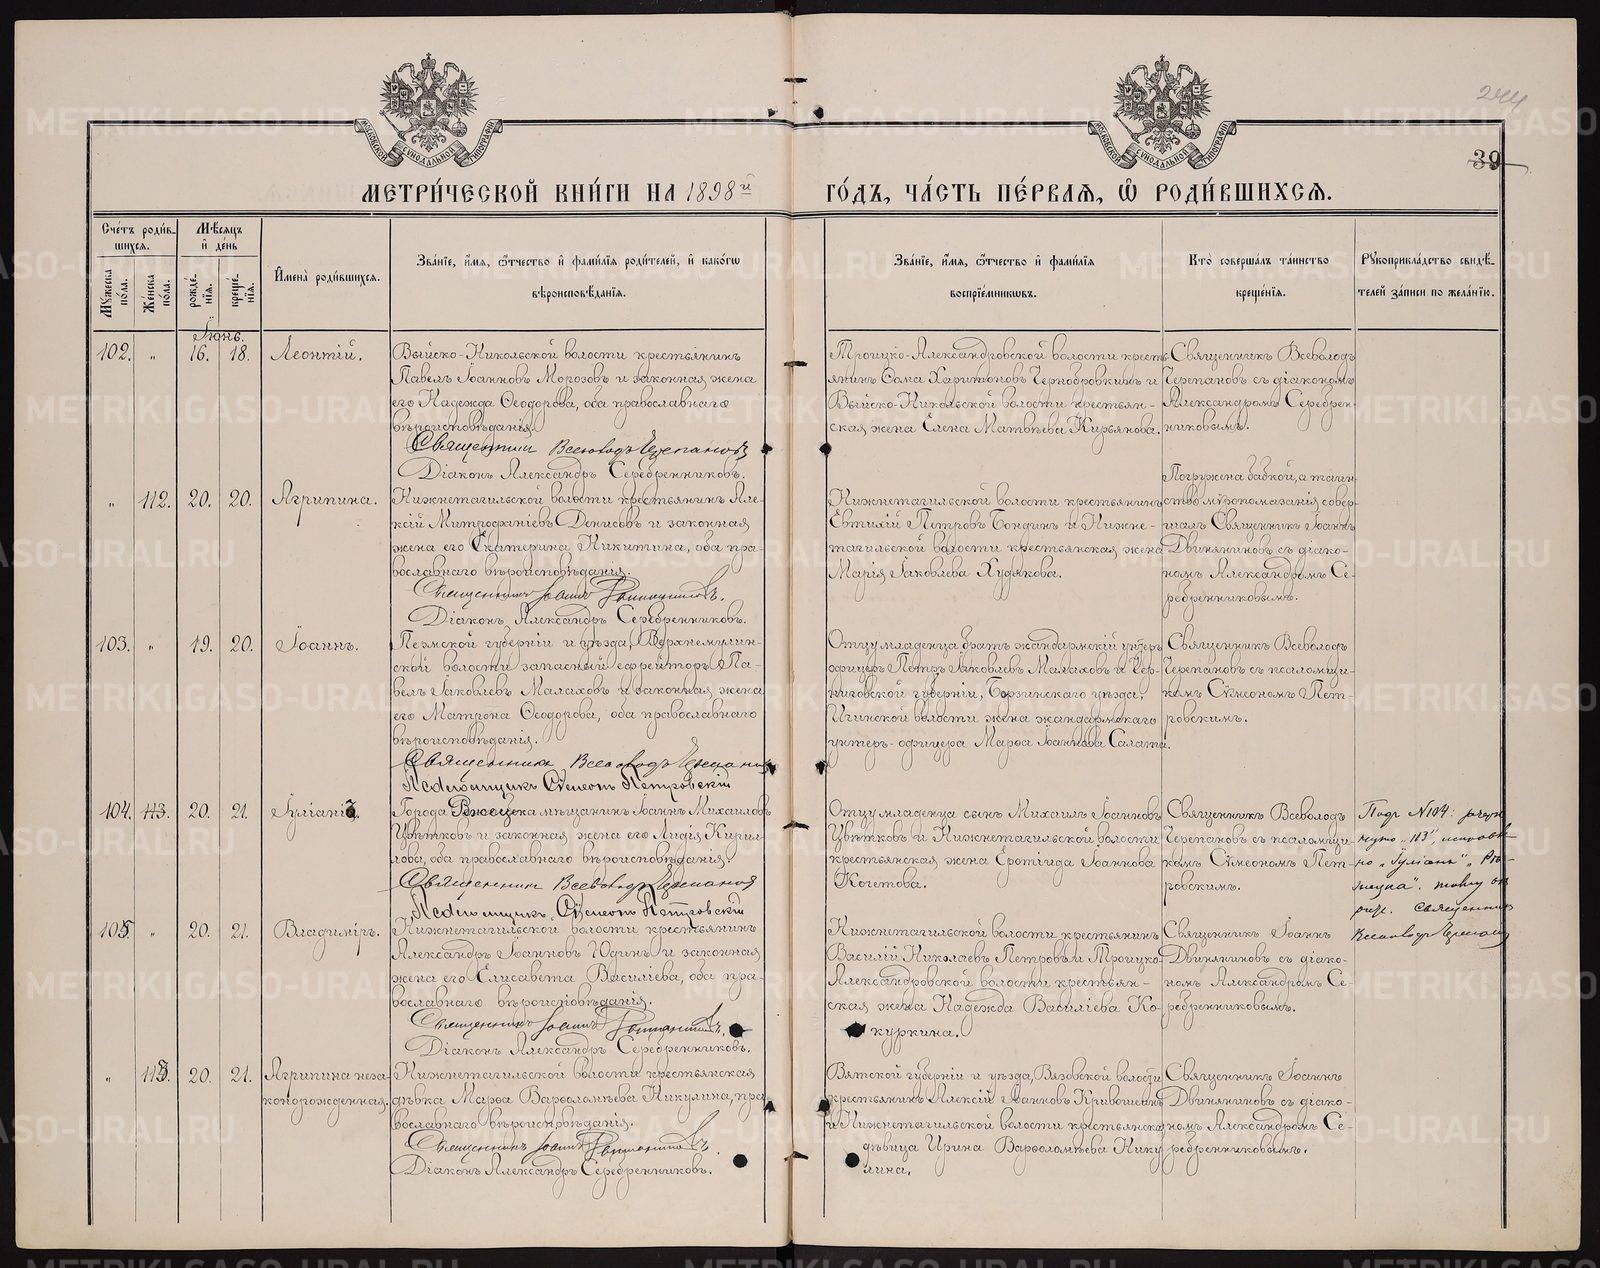 МЕТРИ́ЧЕСКОЙ КНИ́ГИ НА 1898й
ГО́ДЪ, ЧА́СТЬ ПЕ́РВАЯ, Ѿ РОДИ́ВШИХСЯ.
244
39
МОСКОВСКОЙ СѴНОДАЛЬНОЙ ТИПОГРАФІИ
МОСКОВСКОЙ СѴНОДАЛЬНОЙ ТИПОГРАФІИ
Сче́тъ роди́в-
шихся.
Мꙋжеска по́ла.
Же́нска по́ла.
Мѣ́сяцъ
и҆ де́нь
рожде́-
нїя.
креще́-
нїя.
И҆мена̀ роди́вшихся.
Зва́нїе, и҆́мя, ѻ҆́тчество и҆ фами́лїя роди́телей, и҆ како́гѡ
вѣроисповѣ́данїя.
Зва́нїе, и҆́мя, ѻ҆́тчество и҆ фами́лїя
воспрїе́мникѡвъ.
Кто̀ соверша́лъ та́инство
креще́нїя.
Рꙋкоприкла́дство свидѣ́-
телей за́писи по жела́нїю.
Іюнь.
102. „ 16. 18. Леонтій.
Выйско-Никольской волости крестьянинъ
Павелъ Іоанновъ Морозовъ и законная жена
его Надежда Ѳеодорова, оба православнаго
вѣроисповѣданія.
Священникъ Всеволодъ Черепановъ
Діаконъ Александръ Серебренниковъ.
Троицко-Александровской волости кресть-
янинъ Савва Харитоновъ Чернобровкинъ и
Выйско-Никольской волости крестьян-
ская жена Елена Матвѣева Кирьянова.
Священникъ Всеволодъ
Черепановъ съ діакономъ
Александромъ Серебрен-
никовымъ.
„ 112. 20. 20. Агрипина.
Нижнетагильской волости крестьянинъ Але-
ксій Митрофаніевъ Денисовъ и законная
жена его Екатерина Никитина, оба пра-
вославнаго вѣроисповѣданія.
Священникъ Іоаннъ Двиняниновъ.
Діаконъ Александръ Серебренниковъ.
Нижнетагильской волости крестьянинъ
Евтихій Петровъ Бондинъ и Нижне-
тагильской волости крестьянская жена
Марія Іаковлева Худякова.
Погружена бабкой, а таин-
ство мѵропомазанія совер-
шалъ Священникъ Іоаннъ
Двиняниновъ съ діако-
номъ Александромъ Се-
ребренниковымъ.
103. „ 19. 20. Іоаннъ.
Пермской губерніи и уѣзда, Верхнемулин-
ской волости запасный ефрейторъ Па-
велъ Іаковлевъ Малаховъ и законная жена
его Матрона Ѳеодорова, оба православнаго
вѣроисповѣданія.
Священникъ Всеволодъ Черепановъ
Псаломщикъ Сѵмеонъ Петровскій
Отцу младенца братъ жандармскій унтеръ
офицеръ Петръ Іаковлевъ Малаховъ и Чер-
ниговской губерніи, Борзинскаго уѣзда,
Ичинской волости жена жандармскаго
унтеръ-офицера Марѳа Іоаннова Салата.
Священникъ Всеволодъ
Черепановъ съ псаломщи-
комъ Сѵмеономъ Пет-
ровскимъ.
104. 113. 20. 21. Іуліанъ.
Города Ржевска мѣщанинъ Іоаннъ Михаиловъ
Цвѣтковъ и законная жена его Лидія Кирил-
лова, оба православнаго вѣроисповѣданія.
Священникъ Всеволодъ Черепановъ
Псаломщикъ Сѵмеонъ Петровскій
Отцу младенца сынъ Михаилъ Іоанновъ
Цвѣтковъ и Нижнетагильской волости
крестьянская жена Еротіида Іоаннова
Кочетова.
Священникъ Всеволодъ
Черепановъ съ псаломщи-
комъ Сѵмеономъ Пет-
ровскимъ.
Подъ №104: зачерк-
нуто „113“, исправле-
но „Іуліанъ“
Священникъ
Всеволодъ Черепановъ
105. „ 20. 21. Владиміръ.
Нижнетагильской волости крестьянинъ
Александръ Іоанновъ Юдинъ и законная
жена его Елисавета Василіева, оба пра-
вославнаго вѣроисповѣданія.
Священникъ Іоаннъ Двиняниновъ.
Діаконъ Александръ Серебренниковъ.
Нижнетагильской волости крестьянинъ
Василій Николаевъ Петровъ и Троицко-
Александровской волости крестьян-
ская жена Надежда Василіева Ко-
куркина.
Священникъ Іоаннъ
Двиняниновъ съ діако-
номъ Александромъ Се-
ребренниковымъ.
„ 113. 20. 21. Агрипина неза-
коннорожденная.
Нижнетагильской волости крестьянская
дѣвка Марѳа Варѳоломѣева Никулина, пра-
вославнаго вѣроисповѣданія.
Священникъ Іоаннъ Двиняниновъ.
Діаконъ Александръ Серебренниковъ.
Вятской губерніи и уѣзда, Вязовской волости
крестьянинъ Алексій Іоанновъ Кривошеинъ
и Нижнетагильской волости крестьянская
дѣвица Ирина Варѳоломѣева Нику-
лина.
Священникъ Іоаннъ
Двиняниновъ съ діако-
номъ Александромъ Се-
ребренниковымъ.
METRIKI.GASO-URAL.RU